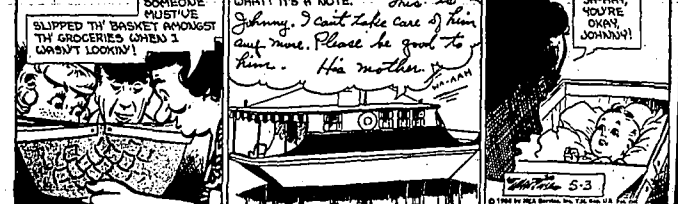 SOMEONE
MUST'VE
SLIPPED TH' BASKET AMONGST
TH' GROCERIES WHEN I
WASN'T LOOKIN'!
WHAT? IT'S A NOTE. This is
Johnny. I can't take care of him
any more. Please be good to
him. His mother.
WA-AAH
YOU'RE
OKAY,
JOHNNY!
5-3
© 1984 by NEA